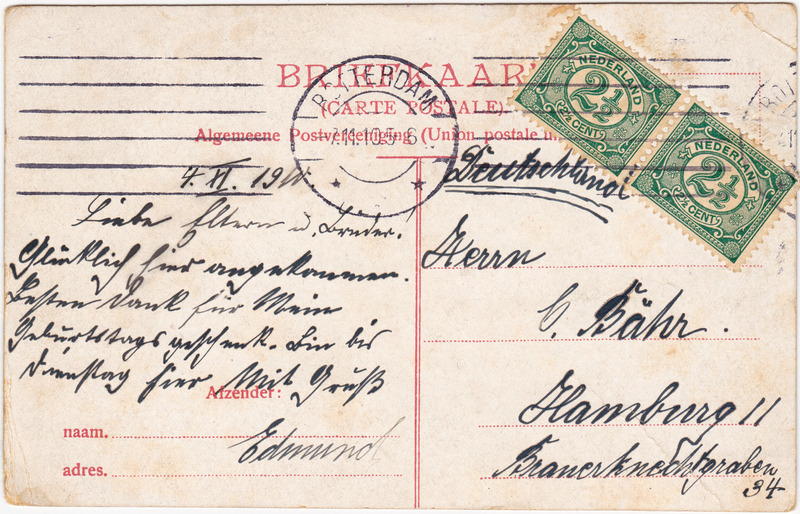 BRIEFKAAR
(CARTE POSTALE).
Algemeene Postvereeniging (Union postale u
ROTTERDAM
7.11.10.5-6
NEDERLAND
2½
2½ CENT
NEDERLAND
2½
2½ CENT
4. XI. 1910.
Liebe Eltern u. Bruder.
Glücklich hier angekommen.
Besten Dank für Mein
Geburtstagsgeschenk. Bin bis
Dienstag hier Mit Gruß
Afzender:
naam.
Edmund
adres.
Deutschland
Herrn
C. Bähr.
Hamburg 11
Brauerknechtgraben
34